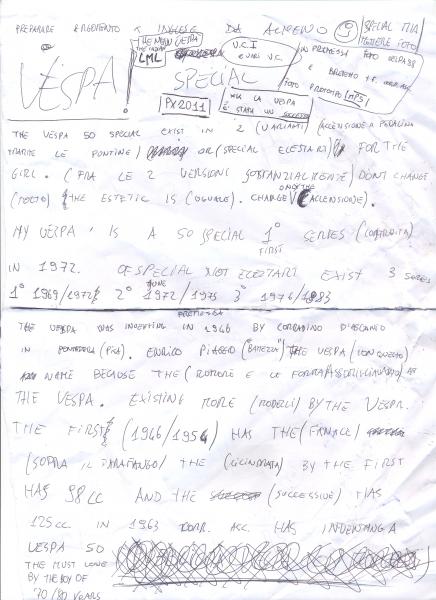 PREPARARE ARGOMENTO INGLESE DA ALMENO 3
SPECIAL MIA
METTERE FOTO
THE NEW VESPA
LML
V.C.I
E VARI V.C.
IN PREMESSA
FOTO VESPA 98
FOTO PROTOTIPO MP5
VESPA!
SPECIAL
PX 2011
MIA LA VESPA
È STATA UN SUCCESSO
THE VESPA 50 SPECIAL EXIST IN 2 (VARIANTI) (ACCENSIONE A PEDALINA
TRAMITE LE PUNTINE) OR (SPECIAL ELESTART) FOR THE
GIRL. (FRA LE 2 VERSIONI SOSTANZIALMENTE) DON'T CHANGE
(MOLTO) THE ESTETIC IS (UGUALE). CHANGE ONLY THE (ACCENSIONE).
MY VESPA IS A 50 SPECIAL 1° SERIES (COSTRUITA)
FIRST
IN 1972. OF SPECIAL NOT ELESTART EXIST 3 SERIES
1° 1969/1972 2° JUNE 1972/1975 3° 1976/1983
PREMESSA
THE VESPA WAS INVENTING IN 1946 BY CORRADINO D'ASCANIO
IN PONTEDERA (PISA). ENRICO PIAGGIO ("BATTEZZA") THE VESPA (CON QUESTO)
NAME BECAUSE THE (RUMORE E LA FORMA ASSOMIGLIAVANO) AT
THE VESPA. EXISTING MORE (MODELLI) BY THE VESPA.
THE FIRST (1946/1954) HAS THE (FANALE)
(SOPRA IL PARAFANGO) THE (CILINDRATA) BY THE FIRST
HAS 98 CC AND THE (SUCCESSIVE) HAS
125 CC IN 1963 CORR. ASC. HAS INVENTING A
VESPA 50
THE MUST LOVE
BY THE BOY OF
'70/80 YEARS